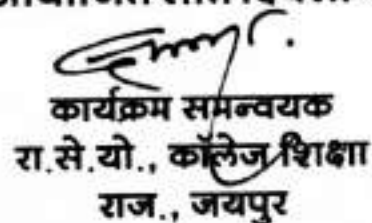 कार्यक्रम समन्वयक
रा.से.यो., कॉलेज शिक्षा
राज., जयपुर